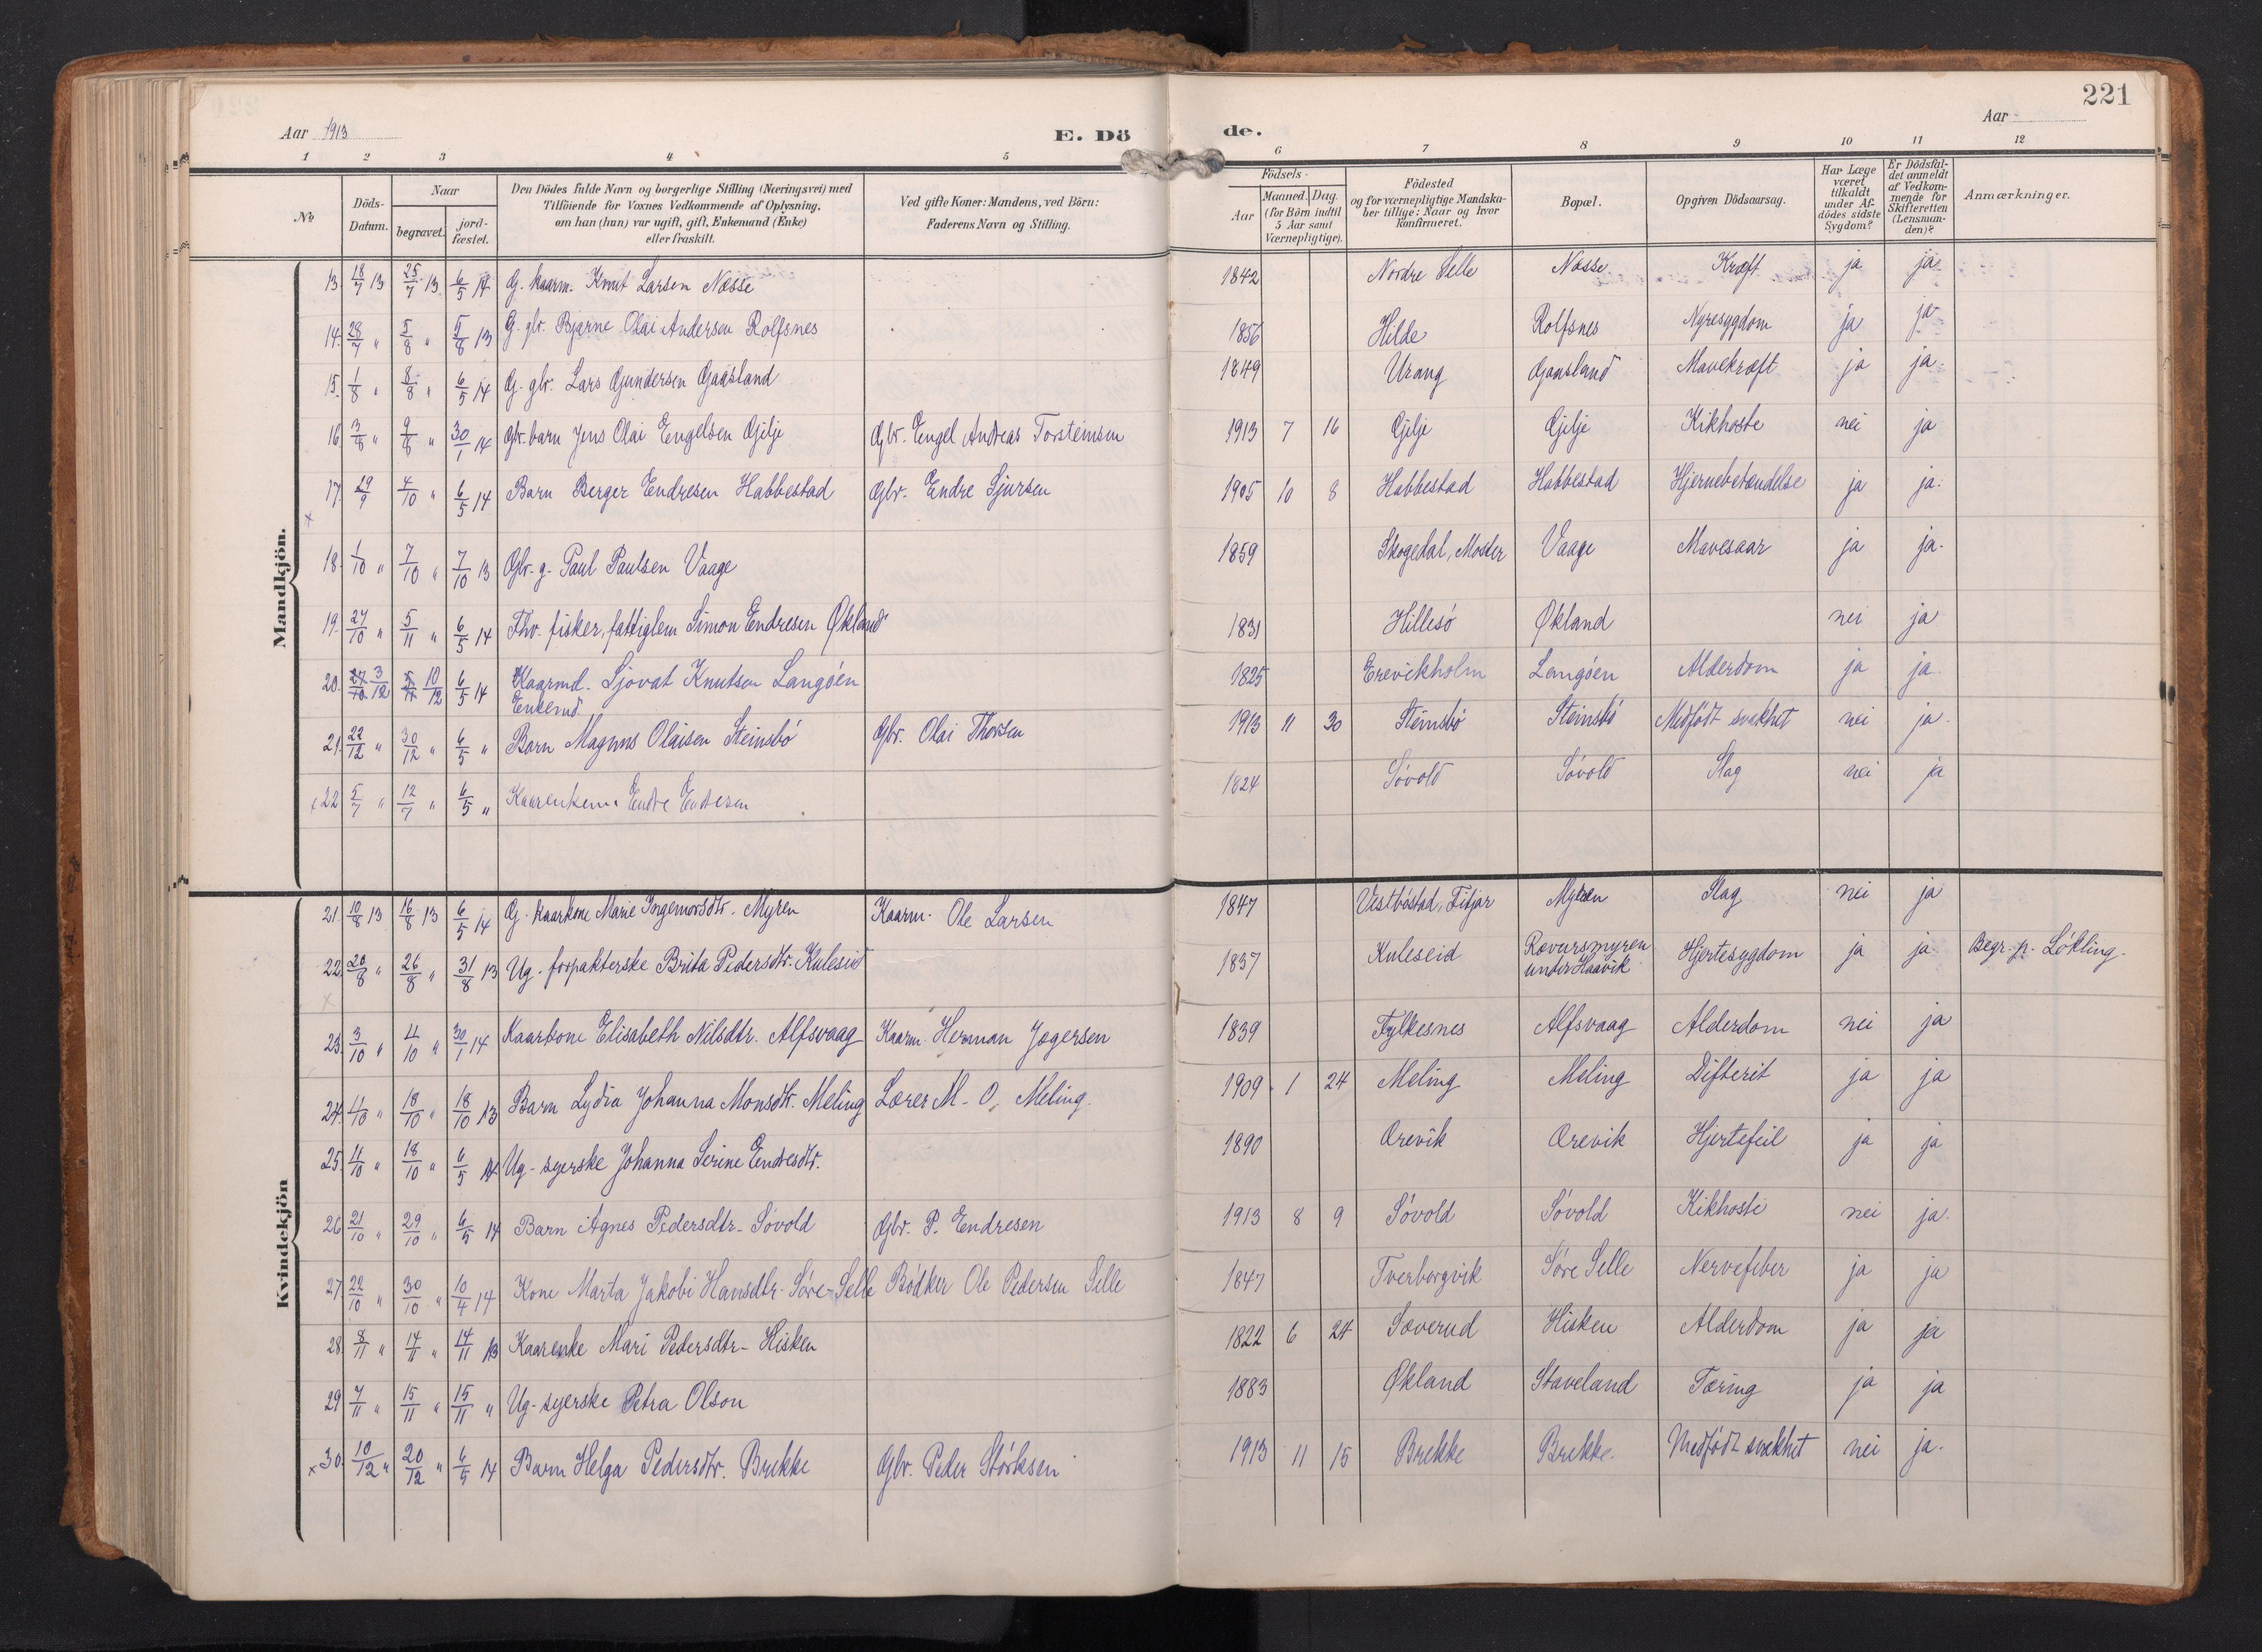 221
Aar 1913
E. Dö
de.
Aar
1 2 3 4 5 6 7 8 9 10 11 12
No
Döds-Datum.
Naar
begravet.
jord-fæstet.
Den Dödes fulde Navn og borgerlige Stilling (Næringsvei) med
Tilföiende for Voxnes Vedkommende af Oplysning,
om han (hun) var ugift, gift, Enkemand (Enke)
eller fraskilt.
Ved gifte Koner: Mandens, ved Börn:
Faderens Navn og Stilling.
Födsels-
Aar
Maaned. Dag.
(for Börn indtil
5 Aar samt
Værnepligtige).
Födested
og for værnepligtige Mandska-
ber tillige: Naar og hvor
konfirmeret.
Bopæl.
Opgiven Dödsaarsag.
Har Læge
været
tilkaldt
under Af-
dödes sidste
Sygdom?
Er Dödsfal-
det anmeldt
af Vedkom-
mende for
Skifteretten
(Lensman-
den)?
Anmærkninger.
Mandkjön.
13. 18/7 13 25/7 13 6/5 14 G. kaarm. Knut Larsen Næsse 1842 Nordre Selle Næsse Kræft ja ja
14. 28/7 " 5/8 " 5/8 13 G. gbr. Bjarne Olai Andersen Rolfsnes 1856 Hilde Rolfsnes Nyresygdom ja ja
15. 1/8 " 8/8 " 6/5 14 G. gbr. Lars Gundersen Gaasland 1849 Urang Gaasland Mavekræft ja ja
16. 3/8 " 9/8 " 30/1 14 Gbr. barn Jens Olai Engelsen Gjilje Gbr. Engel Andreas Torsteinsen 1913 7 16 Gjilje Gjilje Kikhoste nei ja
17. 29/9 4/10 " 6/5 14 Barn Berger Endresen Habbestad Gbr. Endre Sjursen 1905 10 8 Habbestad Habbestad Hjernebetændelse ja ja.
x
18. 1/10 " 7/10 " 7/10 13 Gbr. g. Paul Paulsen Vaage 1859 Skogedal, Moster Vaage Mavesaar ja ja.
19. 27/10 " 5/11 " 6/5 14 Fhv. fisker, fattiglem Simon Endresen Økland 1831 Hillesö Økland nei ja
20. 3/12 10/12 6/5 14 Kaarmd. Sjovat Knutsen Langöen 1825 Erevikholm Langöen Alderdom ja ja.
Enkemd.
21. 22/12 " 30/12 " 6/5 " Barn Magnus Olaisen Steinsbö Gbr. Olai Thorsen 1913 11 30 Steinsbö Steinsbö Medfödt svakhet nei ja.
x 22 5/7 " 12/7 " 6/5 " Kaarenkem. Endre Endresen 1824 Sövold Sövold Slag nei ja
Kvindekjön
21. 10/8 13 16/8 13 6/5 14 G. kaarkone Marie Ingemorsdtr. Myren Kaarm. Ole Larsen 1847 Vestböstad, Fitjar Myren Slag nei ja
22. 20/8 " 26/8 " 31/8 13 Ug. forpakterske Brita Pedersdtr. Kuleseid 1837 Kuleseid Rovursmyren under Haavik Hjertesygdom ja ja Begr. p. Lökling.
23. 3/10 " 11/10 " 30/1 14 Kaarkone Elisabeth Nilsdtr. Alfsvaag Kaarm. Herman Jogersen 1839 Fylkesnes Alfsvaag Alderdom nei ja
24. 11/10 " 18/10 " 18/10 13 Barn Lydia Johanna Monsdtr. Meling Lærer M. O. Meling. 1909 1 24 Meling Meling Difterit ja ja
25. 11/10 " 18/10 " 6/5 14 Ug. syerske Johanna Serine Endresdtr. 1890 Ørevik Ørevik Hjertefeil ja ja
26. 21/10 " 29/10 " 6/5 14 Barn Agnes Pedersdtr. Sövold Gbr. P. Endresen 1913 8 9 Sövold Sövold Kikhoste nei ja.
27. 22/10 " 30/10 " 10/4 14 Kone Marta Jakobi Hansdtr. Söre-Selle Bödker Ole Pedersen Selle 1847 Tverborgvik Söre Selle Nervefeber ja ja
28. 8/11 " 14/11 " 14/11 13 Kaarenke Mari Pedersdtr. Hisken 1822 6 24 Sæverud Hisken Alderdom ja ja
29. 7/11 " 15/11 " 15/11 " Ug. syerske Petra Olson 1883 Økland Staveland Tæring ja ja
x 30. 10/12 " 20/12 " 6/5 14 Barn Helga Pedersdtr. Brekke Gbr. Peder Störksen 1913 11 15 Brekke Brekke. Medfödt svakhet nei ja.